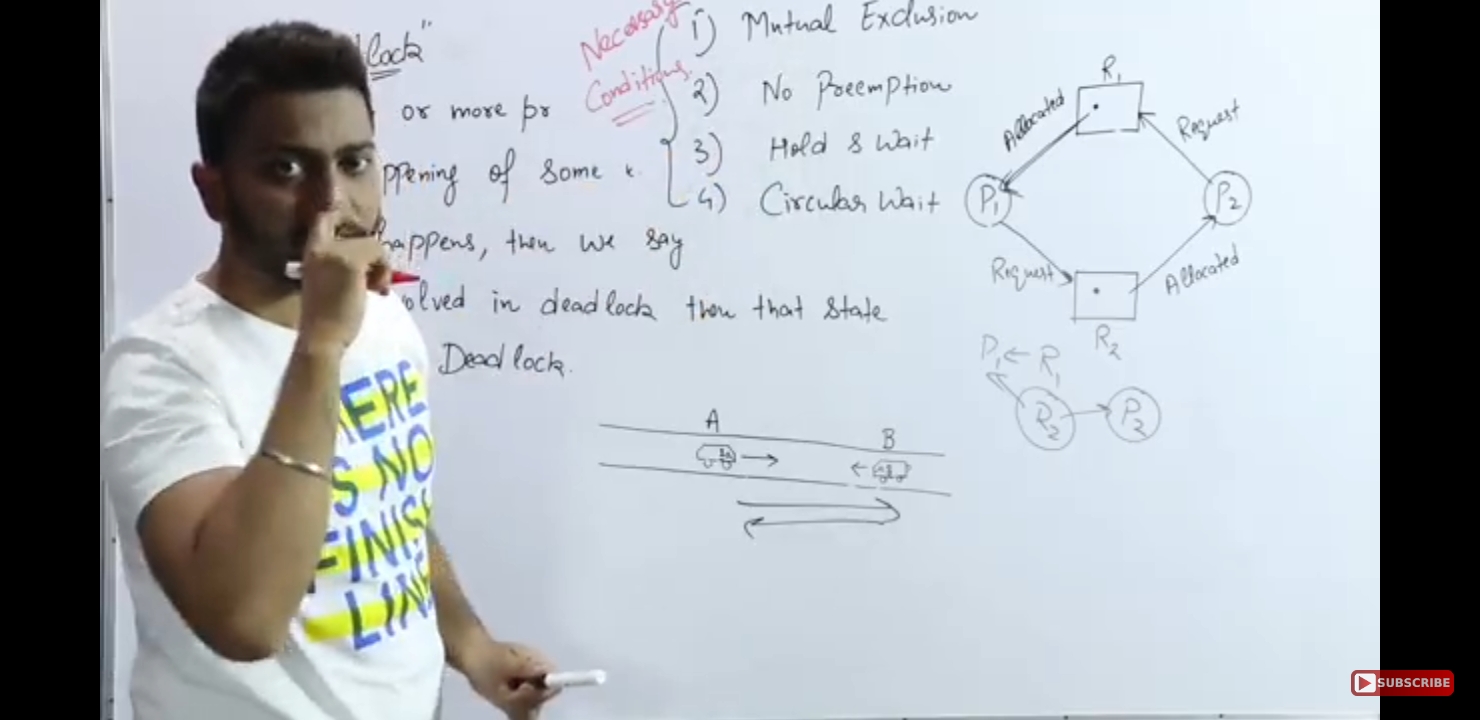 lock"
or more pr
ppening of some
happens, then we say
olved in deadlock then that state
Deadlock.
Necessary
Conditions.
1) Mutual Exclusion
2) No Preemption
3) Hold & Wait
4) Circular Wait
R1
Allocated
Request
P1
P2
Request
Allocated
R2
P1 ← R1
R2 → P2
A
B
HERE
IS NO
FINISH
LINE
SUBSCRIBE